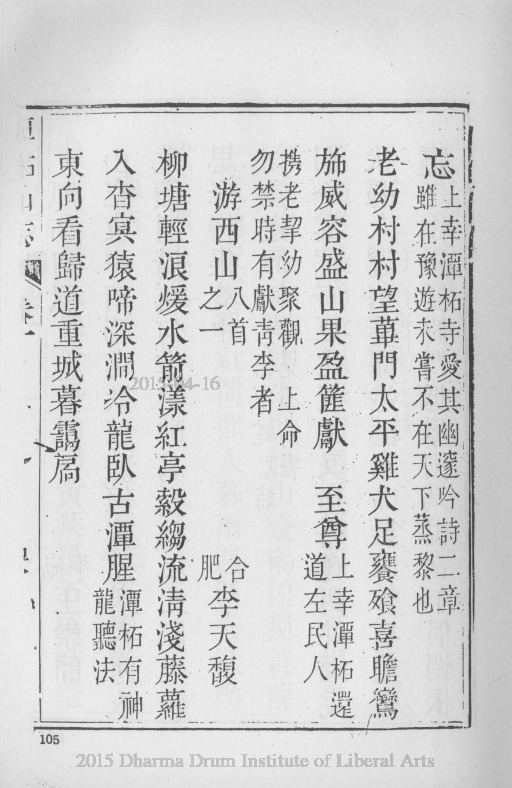 忘上幸潭柘寺愛其幽邃吟詩二章
雖在豫遊未嘗不在天下蒸黎也
老幼村村望蓽門太平雞犬足饔飱喜瞻鸞
旆威容盛山果盈筐獻 至尊上幸潭柘還
道左民人
携老挈幼聚觀 上命
勿禁時有獻青李者
游西山八首之一 合肥李天馥
柳塘輕浪煖水箭漾紅亭縠縐流清淺藤蘿
入杳冥猿啼深澗冷龍臥古潭腥潭柘有神
龍聽法
東向看歸道重城暮靄扃
柘山志 卷
2015-04-16
105
2015 Dharma Drum Institute of Liberal Arts